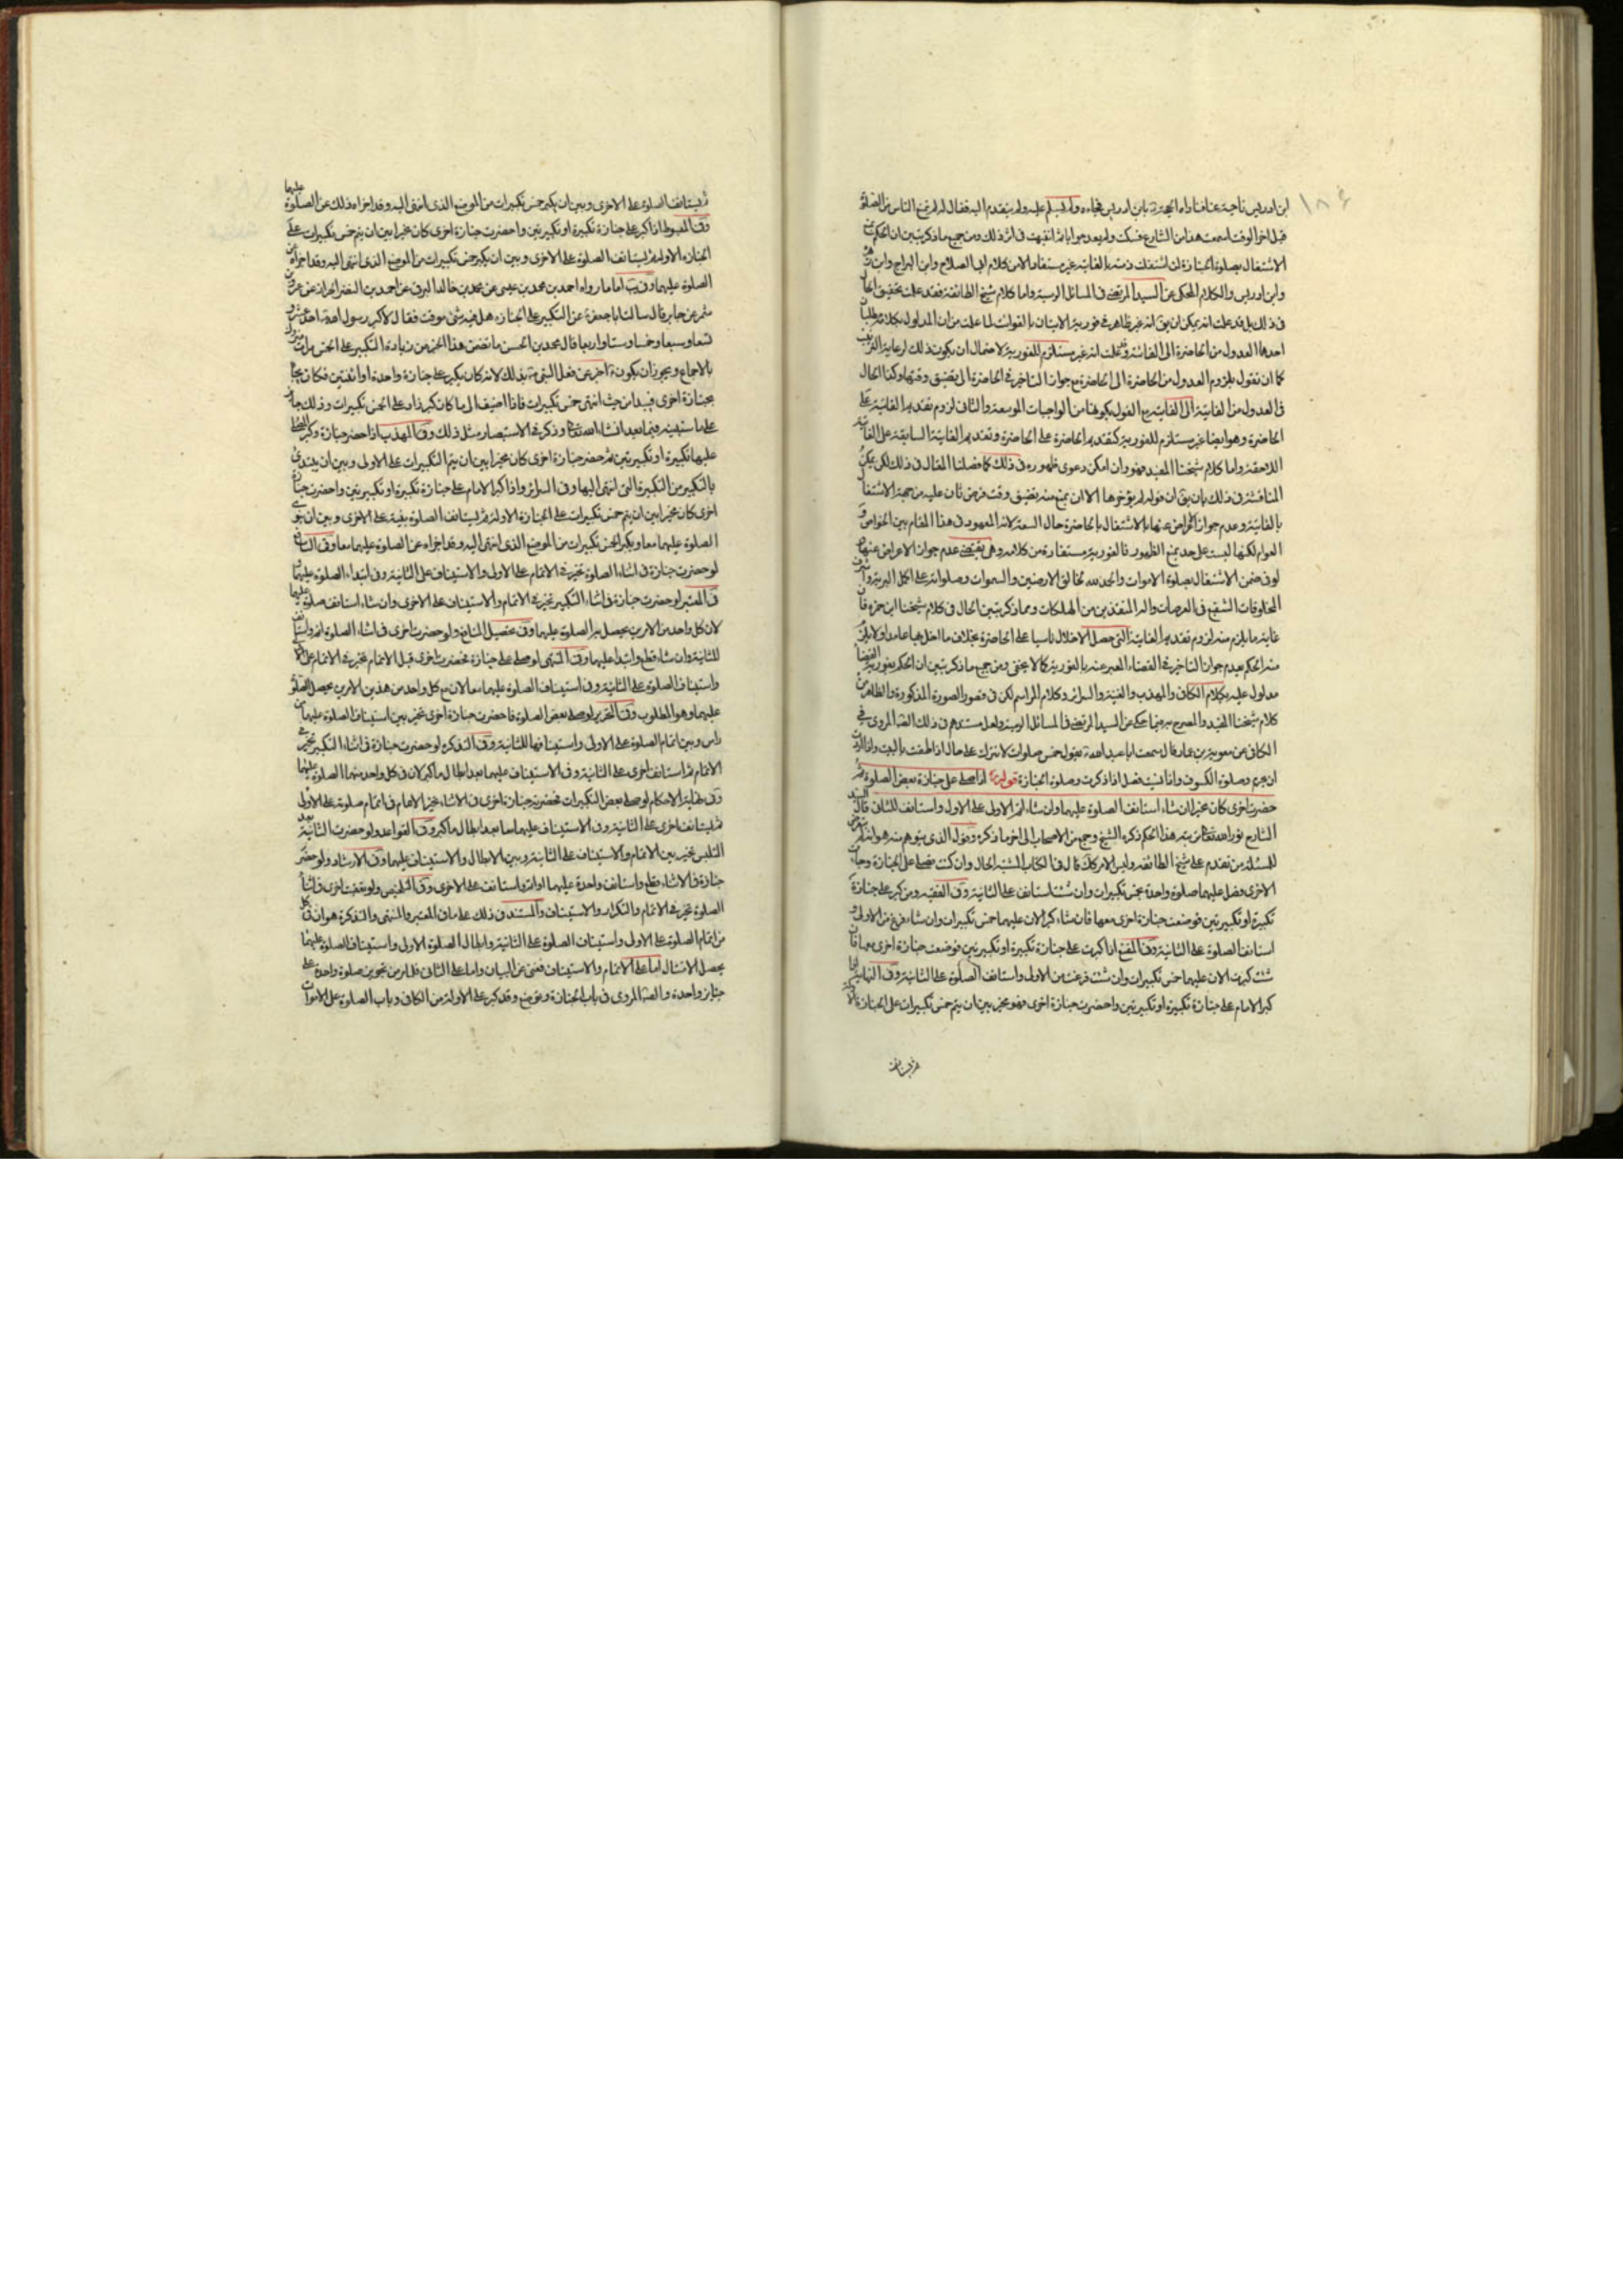 ابن ادريس ناحية عنا فناداه
قبل اخر الوقت اسمعت هذا من الشارع فسكت ولم يعد جوابا ثم انتبهت في اثر ذلك ومن جميع ما ذكر تبين ان الحكم
الاشتغال بصلوة الجنازة لمن اشتغلت ذمته بالفايتة غير مستفاد الا من كلام ابي الصلاح وابن البراج وابن زهرة
وابن ادريس والكلام المحكي عن السيد المرتضى في المسائل الرسية واما كلام شيخ الطائفة فقد علمت تحقيق الحال
في ذلك بل قد علمت انه يمكن ان يق انه غير ظاهر في فورية الاتيان بالفوائت لما علمت من ان المدلول بكلامه
احدها العدول من الحاضرة الى الفائتة وقد علمت انه غير مستلزم للفورية لاحتمال ان يكون ذلك لرعاية الترتيب
كما ان نقول بلزوم العدول من الحاضرة الى الحاضرة مع جواز التاخير في الحاضرة الى تضيق وقتها وكذا الحال
في العدول من الفايتة الى الفايتة مع القول بكونها من الواجبات الموسعة والثاني لزوم تقديم الفايتة على
الحاضرة وهو ايضا غير مستلزم للفورية كتقديم الحاضرة على الحاضرة وتقديم الفايتة السابقة على الفايتة
اللاحقة واما كلام شيخنا المفيد فهو وان امكن دعوى ظهوره في ذلك كما فصلنا المقال في ذلك لكن يمكن
المناقشة في ذلك بان يق ان قوله لم يؤخرها الا ان يمنع منه تضيق وقت فرض ثان عليه من جهة الاشتغال
بالفايتة وعدم جواز الاعراض عنها بالاشتغال بالحاضرة حال السعة لانه المعهود في هذا المقام بين الخواص و
العوام لكنها ليست على حد يمنع الظهور فالفورية مستفادة من كلامه وهي يقتضي عدم جواز الاعراض عنها
لو في ضمن الاشتغال بصلوة الاموات والحمد لله خالق الارضين والسموات وصلواته على اكمل البرية واشرف
المخلوقات الشفيع في العرصات واله المنقذين من المهلكات ومما ذكر تبين الحال في كلام شيخنا ابن حمزه فان
غاية ما يلزم منه لزوم تقديم الفايتة التي حصل الاخلال ناسيا على الحاضرة بخلاف ما اخل بها عامدا ولا يلزم
منه الحكم بعدم جواز التاخير في القضاء المعبر عنه بالفورية كما لا يخفى ومن جميع ما ذكر تبين ان الحكم بفورية القضاء
مدلول عليه بكلام الكافي والمهذب والغنية والسرائر وكلام المراسم لكن في خصوص الصورة المذكورة والظاهر من
كلام شيخنا المفيد والمصرح به فيما حكى عن السيد المرتضى في المسائل الرسية ولعل مستندهم في ذلك الصحيح المروي في
الكافي عن معوية بن عمار قال سمعت ابا عبد الله ع يقول خمس صلوات لا تترك على حال اذا طفت بالبيت واذا اردت
ان تحرم وصلوة الكسوف واذا نسيت فصل اذا ذكرت وصلوة الجنازة قوله اذا صلى على جنازة بعض الصلوة ثم
حضرت اخرى كان مخيرا ان شاء استانف الصلوة عليهما وان شاء اتم الاولى على الاول واستانف للثاني قال السيد
الشارح نور الله تعالى مرقده هذا الحكم ذكره الشيخ وجمع من الاصحاب الى اخر ما ذكره وقوله الذي يتوهم منه هو انه لم يتعرض
للمسئلة من تقدم على شيخ الطائفة وليس الامر كذلك قال في الكتاب
الاخرى فصل عليهما صلوة واحدة بخمس تكبيرات وان شئت استانف على الثانية وفي الفقيه ومن كبر على جنازة
تكبيرة او تكبيرتين فوضعت جنازة اخرى معها فان شاء كبر الان عليهما خمس تكبيرات وان شاء فرغ من الاولى و
استانف الصلوة على الثانية وفي المقنع اذا كبرت على جنازة تكبيرة او تكبيرتين فوضعت جنازة اخرى معها فان
شئت كبرت الان عليهما خمس تكبيرات وان شئت فرغت من الاولى واستانفت الصلوة على الثانية وفي النهاية اذا
كبر الامام على جنازة تكبيرة او تكبيرتين واحضرت جنازة اخرى فهو مخير بين ان يتم خمس تكبيرات على الجنازة الاولة
ثم يستانف
ثم يستانف الصلوة على الاخرى وبين ان يكبر خمس تكبيرات من الموضع الذي انتهى اليه وقد اجزاه ذلك عن الصلوة عليهما
وفي المبسوط اذا كبر على جنازة تكبيرة او تكبيرتين واحضرت جنازة اخرى كان مخيرا بين ان يتم خمس تكبيرات على
الجنازة الاولة ثم يستانف الصلوة على الاخرى وبين ان يكبر خمس تكبيرات من الموضع الذي انتهى اليه وقد اجزاه عن
الصلوة عليهما وفي يب اما ما رواه احمد بن محمد بن عيسى عن محمد بن خالد البرقي عن احمد بن النضر الخزاز عن عمرو بن
شمر عن جابر قال سالت ابا جعفر ع عن التكبير على الجنازة هل فيه شئ موقت فقال لا كبر رسول الله ص احد عشر و
تسعا وسبعا وخمسا وستا واربعا قال محمد بن الحسن ما تضمن هذا الخبر من زيادة التكبير على الخمس مرات متروك
بالاجماع ويجوز ان يكون ع اخبر عن فعل النبي ص بذلك لانه كان يكبر على جنازة واحدة او اثنتين فكان يجاء
بجنازة اخرى فيبدا من حيث انتهى خمس تكبيرات فاذا اضيف الى ما كان كبر زاد على الخمس تكبيرات وذلك جايز
على ما سنبينه فيما بعد انشاء الله تعالى وذكر في الاستبصار مثل ذلك وفي المهذب اذا حضر جنازة وكبر المصلي
عليها تكبيرة او تكبيرتين ثم حضر جنازة اخرى كان مخيرا بين ان يتم التكبيرات على الاولى وبين ان يبتدئ
بالتكبير من التكبيرة التي انتهى اليها وفي السرائر واذا كبر الامام على جنازة تكبيرة او تكبيرتين واحضرت جنازة
اخرى كان مخيرا بين ان يتم خمس تكبيرات على الجنازة الاولة ثم يستانف الصلوة بنية على الاخرى وبين ان ينوي
الصلوة عليهما معا ويكبر الخمس تكبيرات من الموضع الذي انتهى اليه وقد اجزاه عن الصلوة عليهما معا وفي النافع
لو حضرت جنازة في اثناء الصلوة تخير في الاتمام على الاولى والاستيناف على الثانية وفي ابتداء الصلوة عليهما
في المعتبر لو حضرت جنازة في اثناء التكبير تخير في الاتمام والاستيناف على الاخرى وان شاء استانف صلوة عليهما
لان كل واحد من الامرين يحصل به الصلوة عليهما وفي تحصيل المنافع ولو حضرت اخرى في اثناء الصلوة اتم واستانف
للثانية وان شاء قطع وابتدا عليهما وفي المنتهى لو صلى على جنازة فحضرت اخرى قبل الاتمام تخير في الاتمام على الاولى
واستيناف الصلوة على الثانية وفي استيناف الصلوة عليهما معا لان مع كل واحد من هذين الامرين يحصل الصلوة
عليهما وهو المطلوب وفي التحرير لو صلى بعض الصلوة فاحضرت جنازة اخرى تخير بين استيناف الصلوة عليهما من
راس وبين اتمام الصلوة على الاولى واستينافها للثانية وفي التذكرة لو حضرت جنازة في اثناء التكبير تخير في
الاتمام ثم استانف اخرى على الثانية وفي الاستيناف عليهما بعد ابطال ما كبر لان في كل واحد منهما الصلوة عليهما
وفي نهاية الاحكام لو صلى بعض التكبيرات فحضرت جنازة اخرى في الاثناء تخير الامام في اتمام صلوته على الاولى
ثم يستانف اخرى على الثانية وفي الاستيناف عليهما معا بعد ابطال ما كبر وفي القواعد ولو حضرت الثانية بعد
التلبس تخير بين الاتمام والاستيناف على الثانية وبين الابطال والاستيناف عليهما وفي الارشاد ولو حضر
جنازة في الاثناء قطع واستانف واحدة عليهما او اتم واستانف على الاخرى وفي التلخيص ولو تعقبت اخرى في اثناء
الصلوة تخير في الاتمام والتكرار والاستيناف والمستند في ذلك على ما في المعتبر والمنتهى والتذكرة هو ان في كل
من اتمام الصلوة على الاول واستيناف الصلوة على الثانية وابطال الصلوة الاولى واستيناف الصلوة عليهما
يحصل الامتثال اما على الاتمام والاستيناف فغني عن البيان واما على الثاني فلما من تجويز صلوة واحدة على
جنايز واحدة والصحيح المروي في باب الجنازة وتوضع وقد كبر على الاولة من الكافي وباب الصلوة على الاموات